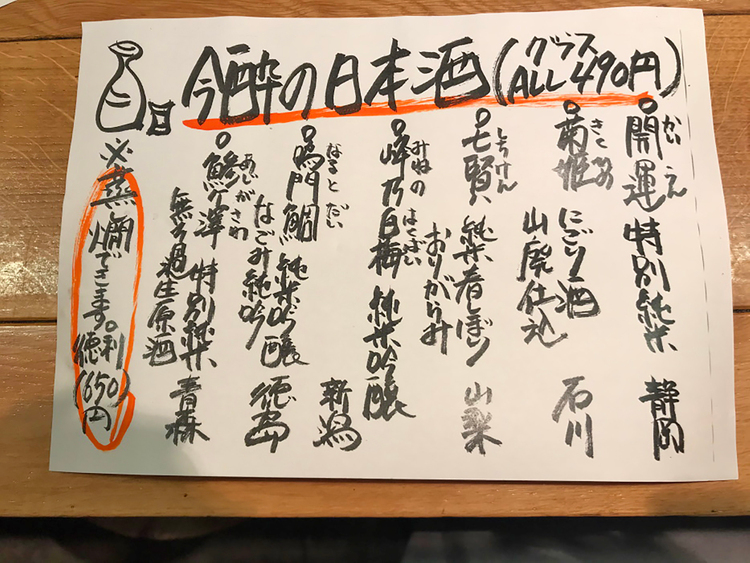 今酔の日本酒(グラス ALL 490円)
開運 特別純米 静岡
かいうん
菊姫 にごり酒 石川
きくひめ
山廃仕込
七賢 純米春しぼり 山梨
しちけん
おりがらみ
峰乃白梅 純米吟醸 新潟
みねの はくばい
鳴門鯛 純米吟醸 徳島
なると だい
なごみ純吟
鰺ヶ澤 特別純米 青森
あじがさわ
無ろ過生原酒
※蒸燗できます。徳利(650)円